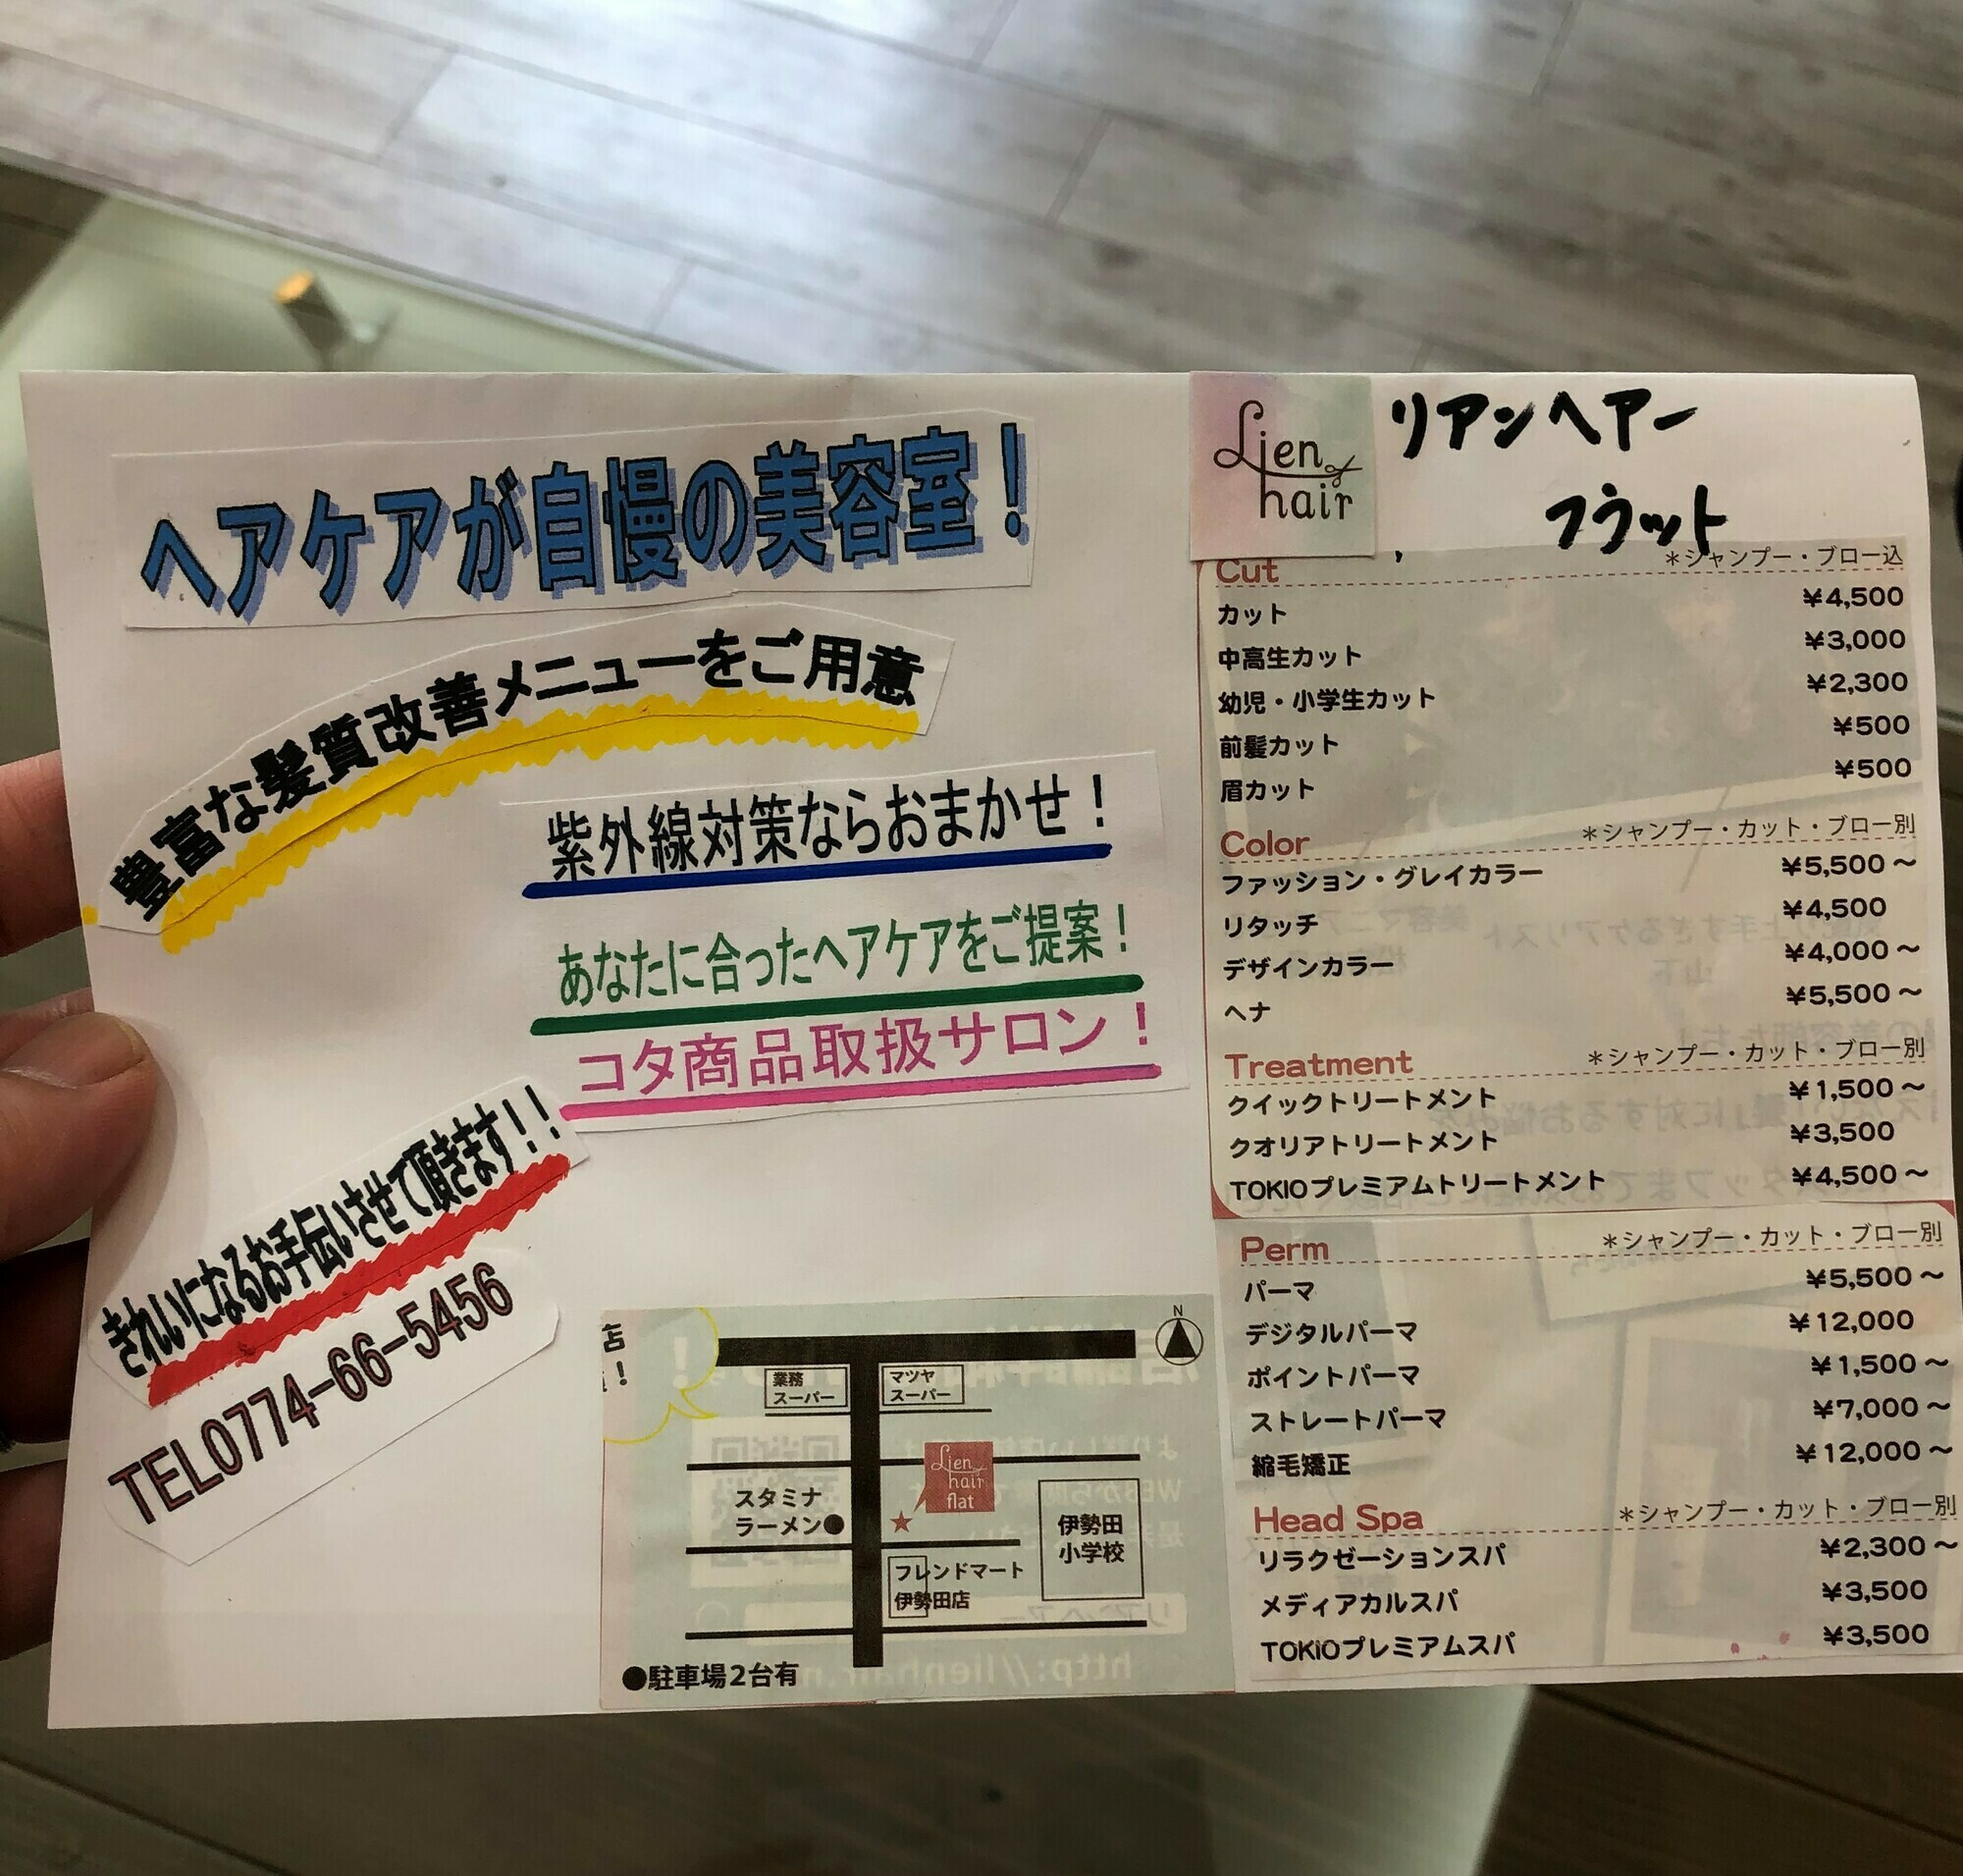 ヘアケアが自慢の美容室！
豊富な髪質改善メニューをご用意
紫外線対策ならおまかせ！
あなたに合ったヘアケアをご提案！
コタ商品取扱サロン！
きれいになるお手伝いさせて頂きます！！
TEL0774-66-5456
店
！
N
業務
スーパー
マツヤ
スーパー
Lien
hair
flat
スタミナ
ラーメン●
伊勢田
小学校
フレンドマート
伊勢田店
●駐車場2台有
Lien
hair
リアンヘアー
フラット
Cut ＊シャンプー・ブロー込
カット ¥4,500
中高生カット ¥3,000
幼児・小学生カット ¥2,300
前髪カット ¥500
眉カット ¥500
Color ＊シャンプー・カット・ブロー別
ファッション・グレイカラー ¥5,500～
リタッチ ¥4,500
デザインカラー ¥4,000～
ヘナ ¥5,500～
Treatment ＊シャンプー・カット・ブロー別
クイックトリートメント ¥1,500～
クオリアトリートメント ¥3,500
TOKIOプレミアムトリートメント ¥4,500～
Perm ＊シャンプー・カット・ブロー別
パーマ ¥5,500～
デジタルパーマ ¥12,000
ポイントパーマ ¥1,500～
ストレートパーマ ¥7,000～
縮毛矯正 ¥12,000～
Head Spa ＊シャンプー・カット・ブロー別
リラクゼーションスパ ¥2,300～
メディアカルスパ ¥3,500
TOKIOプレミアムスパ ¥3,500